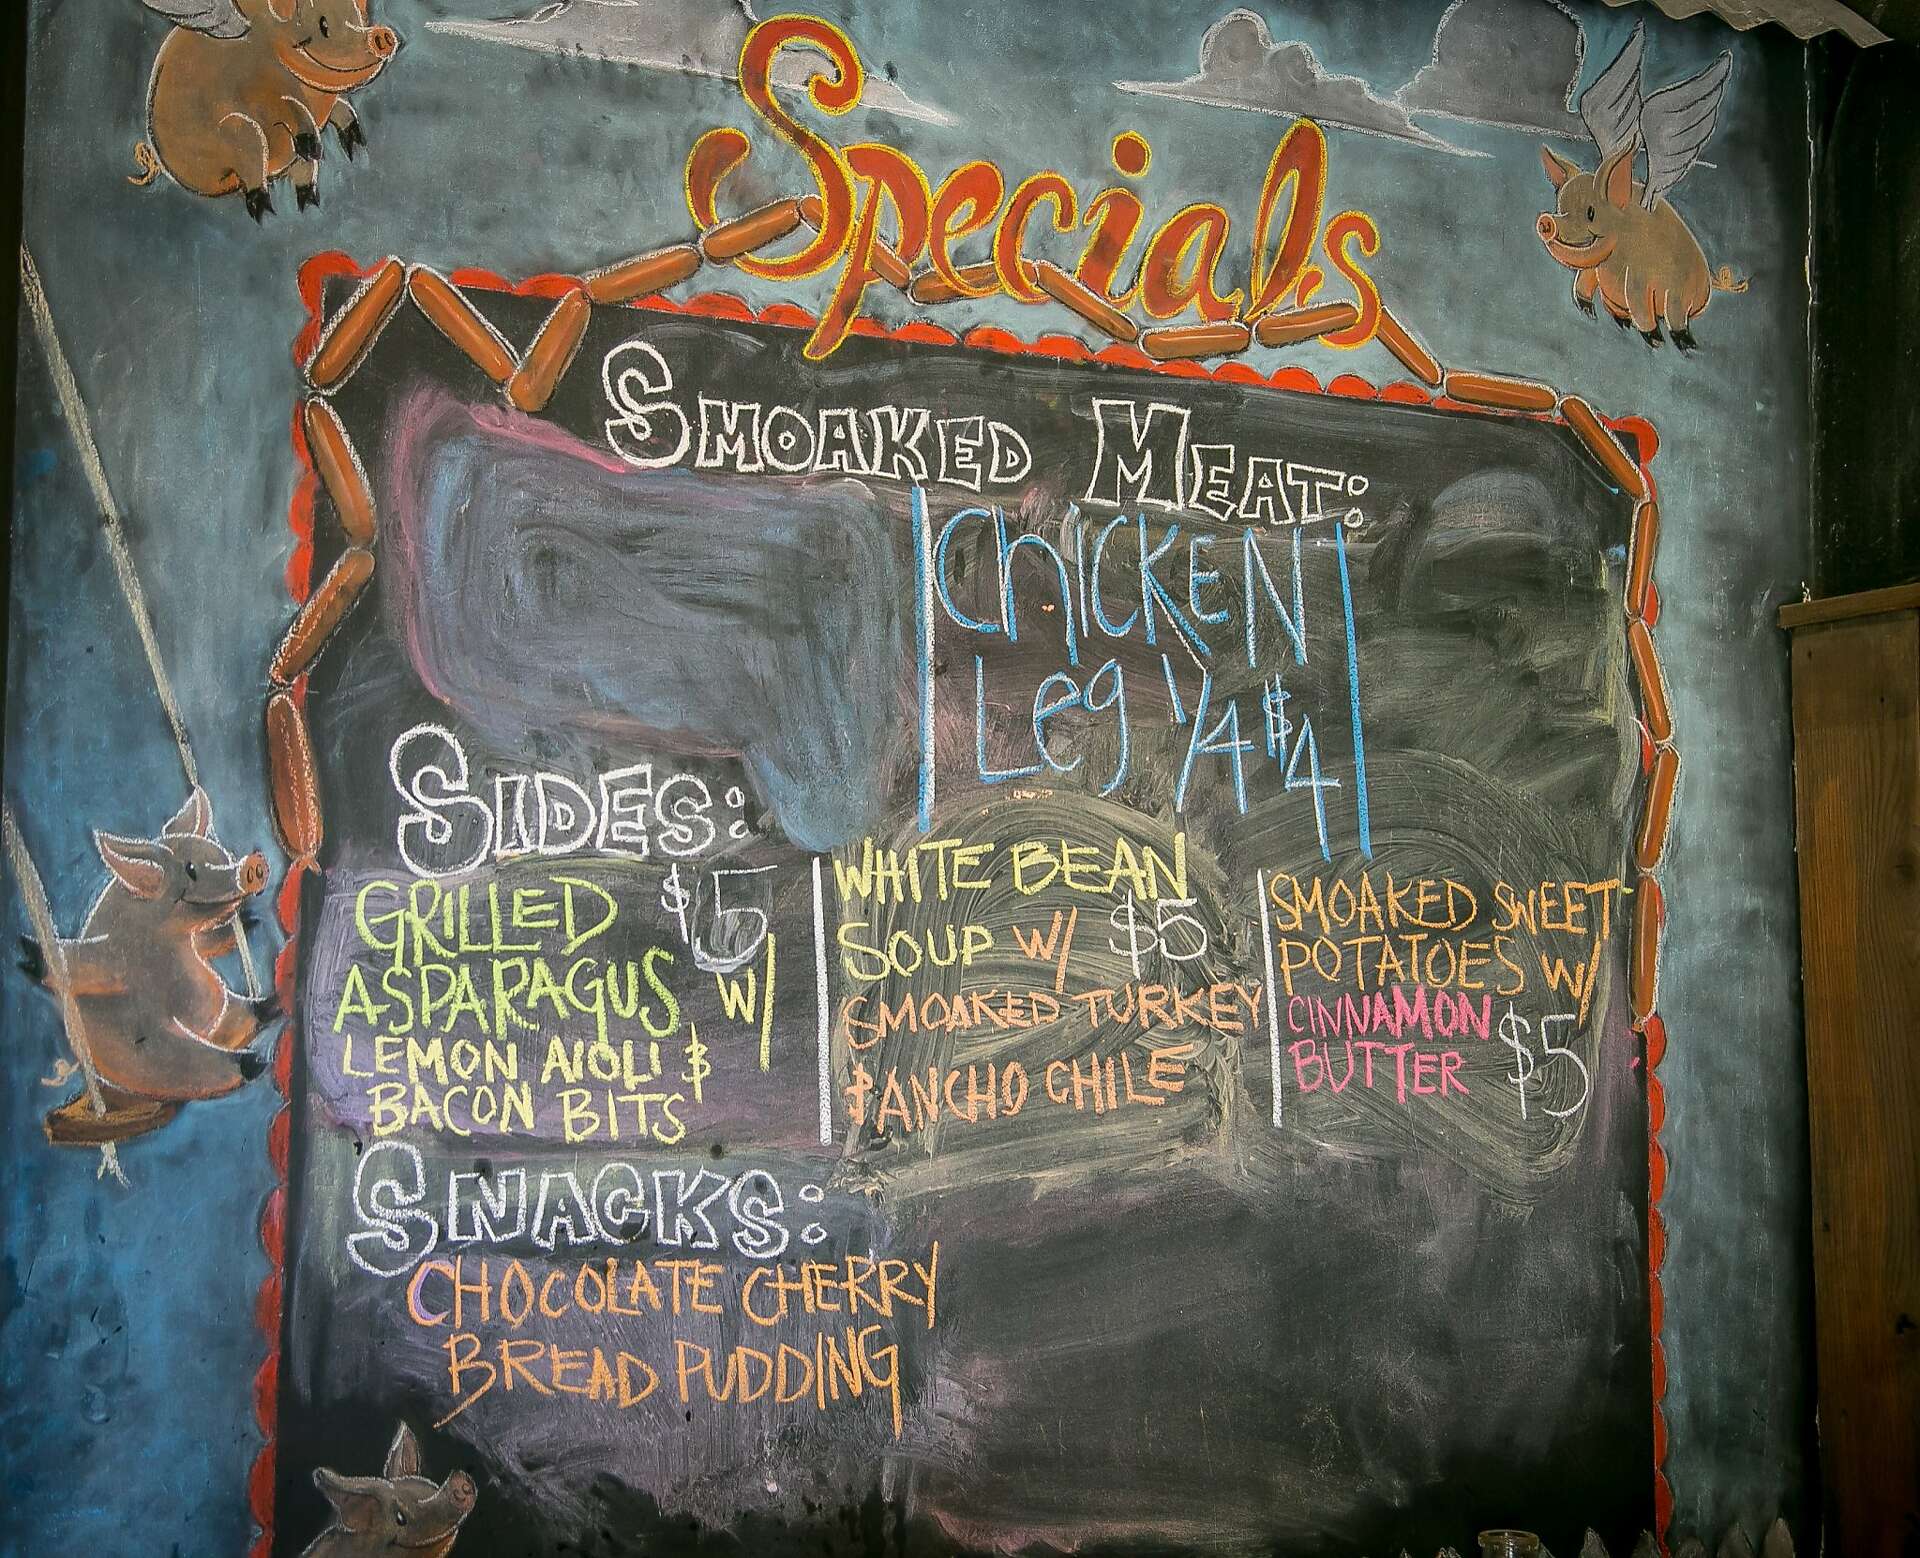 Specials
SMOAKED MEAT:
CHICKEN
Leg 1/4 $4
SIDES:
GRILLED $5
ASPARAGUS W/
LEMON AIOLI &
BACON BITS
WHITE BEAN
SOUP W/ $5
SMOAKED TURKEY
& ANCHO CHILE
SMOAKED SWEET
POTATOES W/
CINNAMON
BUTTER $5
SNACKS:
CHOCOLATE CHERRY
BREAD PUDDING